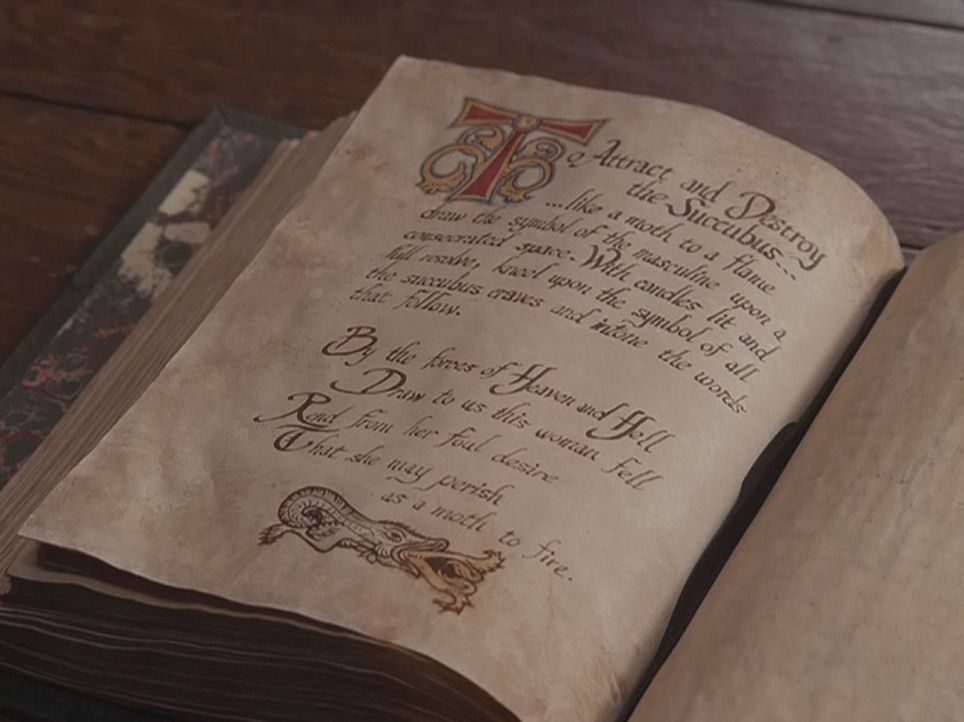 To Attract and Destroy
the Succubus...
...like a moth to a flame
draw the symbol of the masculine upon a
consecrated space. With candles lit and
full resolve, kneel upon the symbol of all
the succubus craves and intone the words
that follow.
By the forces of Heaven and Hell
Draw to us this woman fell
Rend from her foul desire
That she may perish
as a moth to fire.